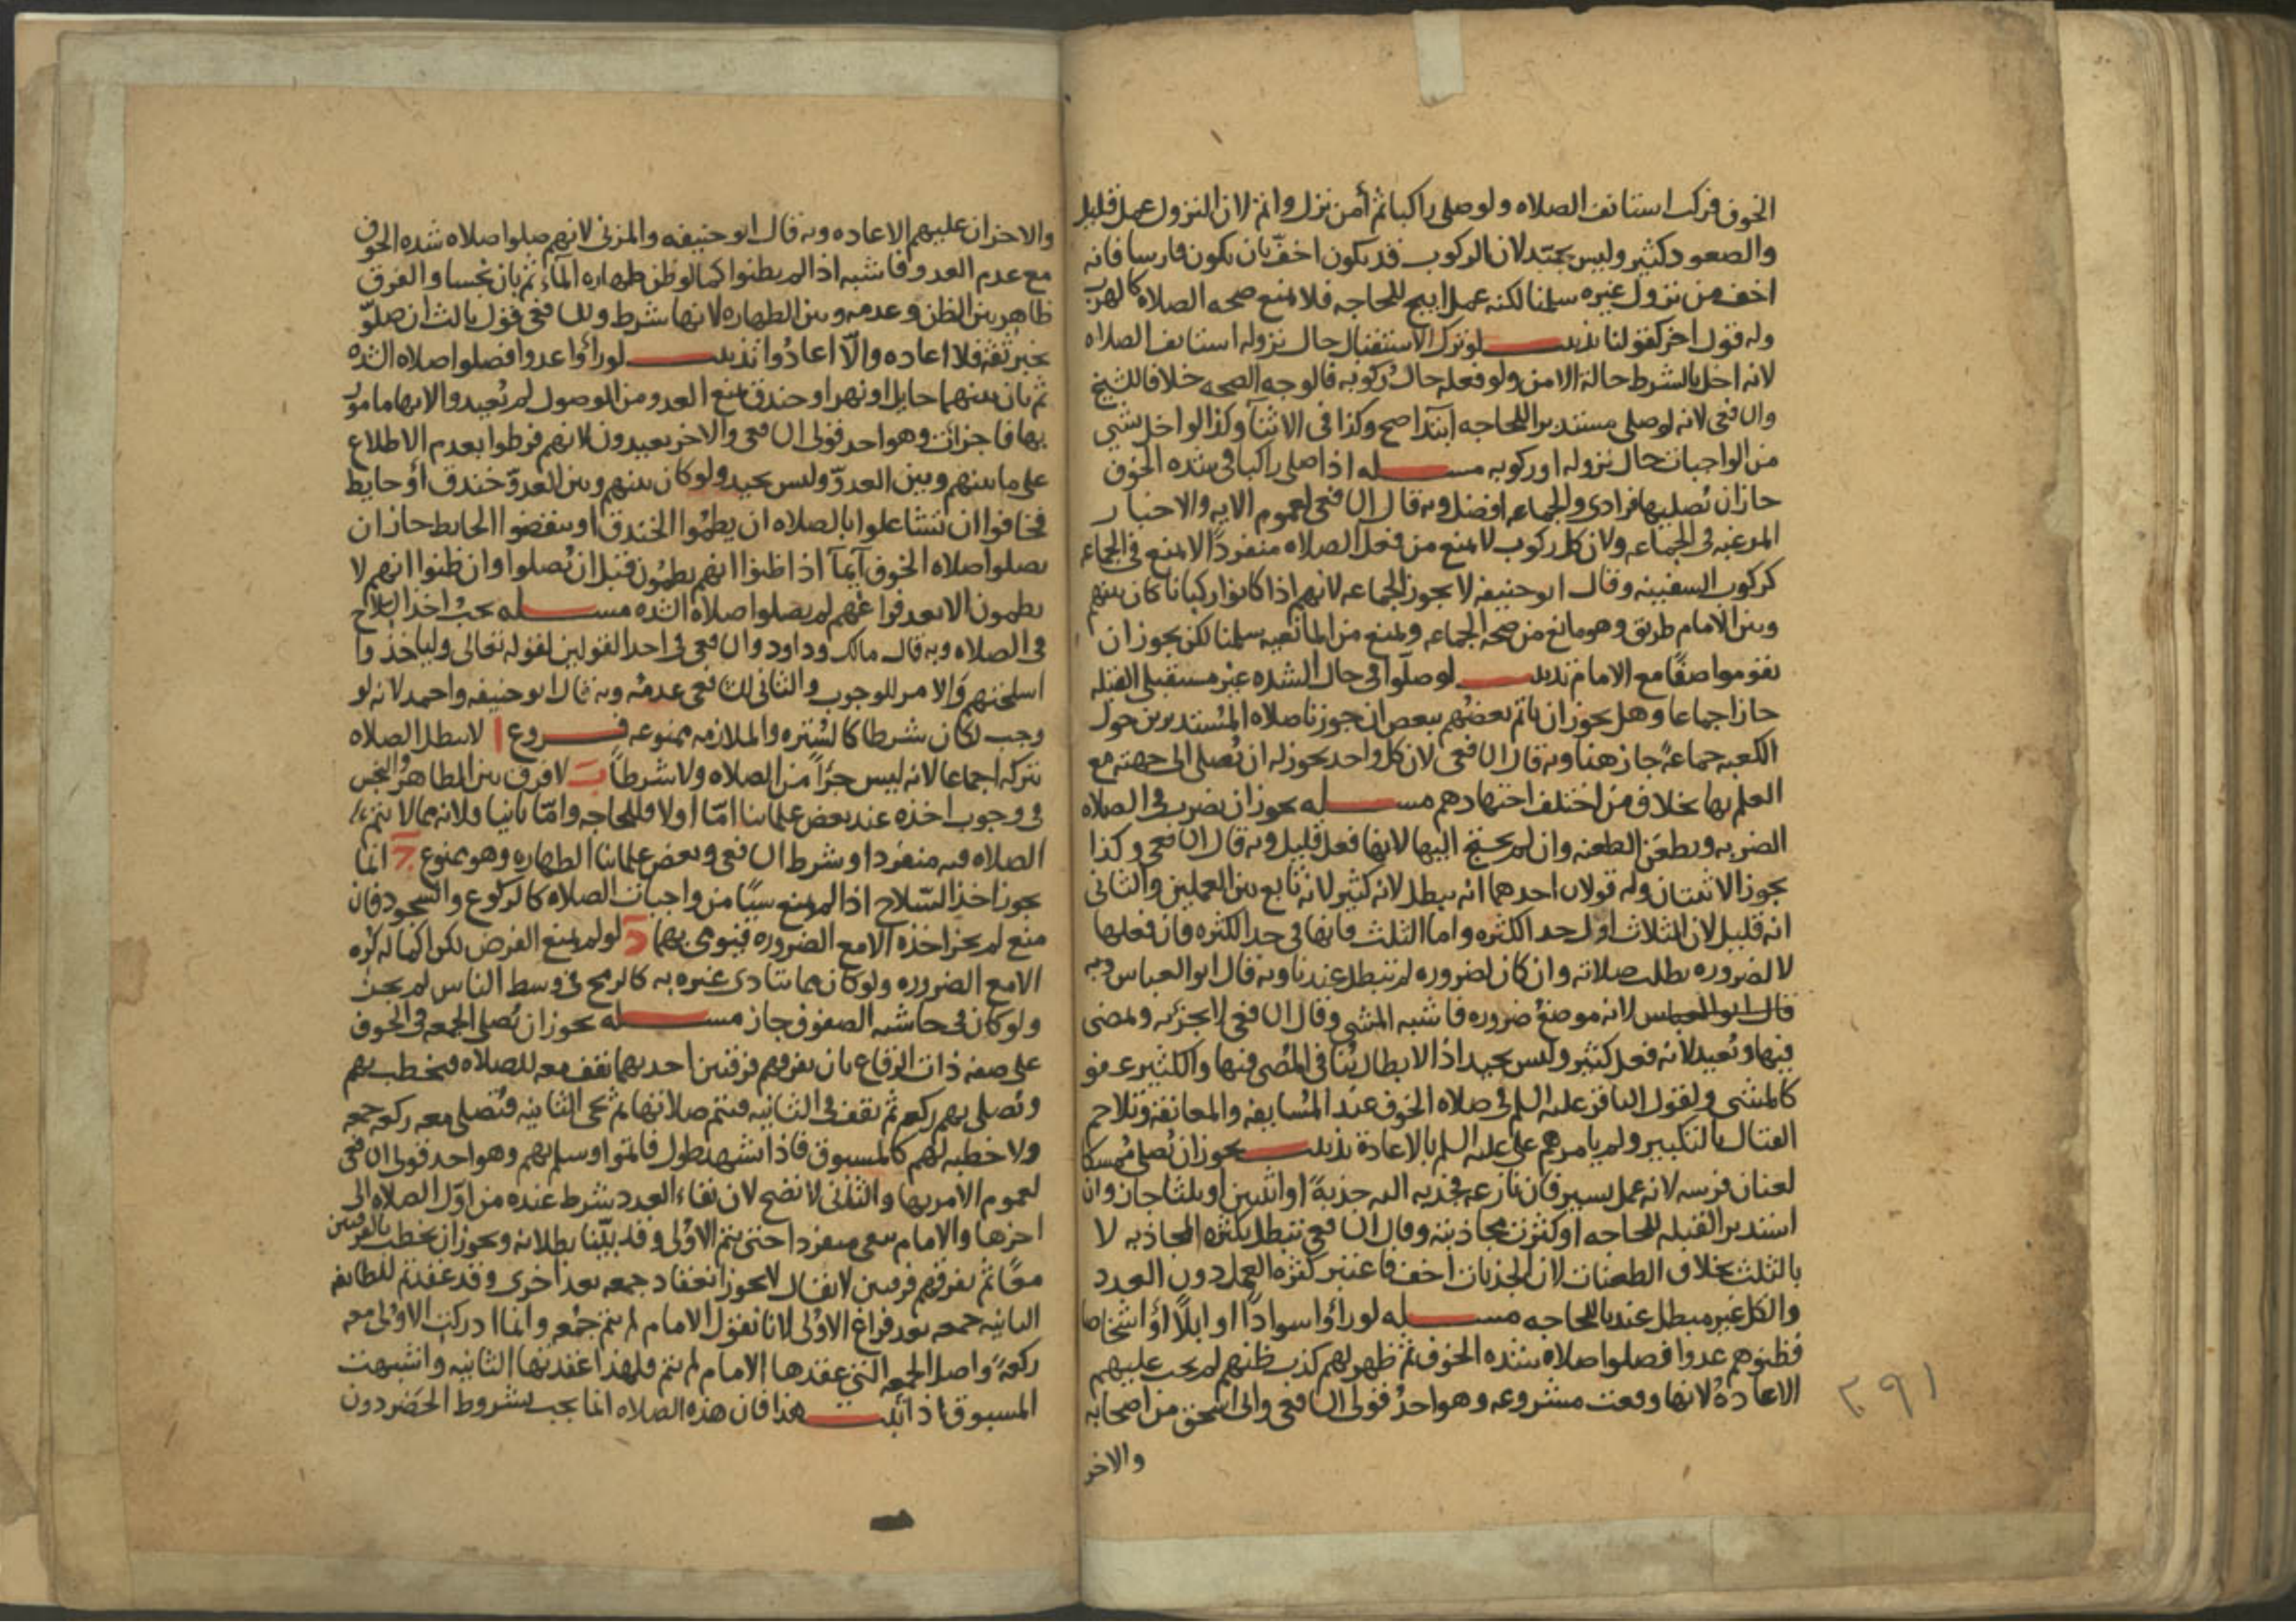 الخوف فركب استانف الصلاه ولو صلى راكبا ثم أمن نزل واتم لان النزول عمل قليل
والصعود كثير وليس بجيد لان الركوب قد يكون اخفّ بان يكون فارسا فانه
اخف من نزول غيره سلمنا لكنه عمل ابيح للحاجه فلا يمنع صحه الصلاه كالهرب
وله قول اخر كقولنا تذنيب لو ترك الاستقبال حال نزوله استانف الصلاه
لانه اخل بالشرط حالة الامن ولو فعله حال ركوبه فالوجه الصحه خلافا للشيخ
والشافعي لانه لو صلى مستدبرا للحاجه ابتدا صح وكذا في الاثنآ وكذا لو اخل بشي
من الواجبات حال نزوله او ركوبه مسله اذا صلى راكبا في شده الخوف
جاز ان يُصليها فرادى والجماعه افضل وبه قال الشافعي لعموم الايه والاخبار
المرغبه في الجماعه ولان كل ركوب لا يمنع من فعل الصلاه منفرداً لا يمنع في الجماعه
كركوب السفينه وقال ابو حنيفه لا يجوز الجماعه لانهم اذا كانوا ركبانا كان بينهم
وبين الامام طريق وهو مانع من صحه الجماعه ويمنع من المانعيه سلمنا لكن يجوز ان
يقوموا صفًا مع الامام تذنيب لو صلّوا في حال الشده غير مستقبلي القبله
جاز اجماعا وهل يجوز ان ياتم بعضُهم ببعض ان جوزنا صلاه المُستديرين حول
الكعبه جماعهً جاز هنا وبه قال الشافعي لان كل واحد يجوز له ان يُصلى الى جهته مع
العلم بها بخلاف من اختلف اجتهادهم مسله يجوز ان يضرب في الصلاه
الضربه ويطعَن الطعنه وان لم يحتج اليها لانها فعل قليل وبه قال الشافعي وكذا
يجوز الاثنتان وله قولان احدهما انه يبطل لانه كثير لانه تابع بين العملين والثاني
انه قليل لان الثلاث اول حد الكثره واما الثلث فانها في حد الكثره فان فعلها
لا لضروره بطلت صلاته وان كان لضروره لم تبطل عندنا وبه قال ابو العباس وبه
قال ابو العباس لانه موضعُ ضروره فاشبه المشي وقال الشافعي لا يجزئه ويمضى
فيها ويُعيد لانه فعل كثير وليس بجيد اذ الابطال يُنافي المُضي فيها والكثير عفو
كالمشي ولقول الباقر عليه السلم في صلاه الخوف عند المُسايفه والمعانقه وتلاحم
القتال بالتكبير ولم يامرهم علي عليه السلم بالاعادة تذنيب يجوز ان يُصلي مُمسكا
لعنان فرسه لانه عمل يسير فان نازعه فجذبه اليه جذبةً او اثنتين او ثلثا جاز وان
استدبر القبله للحاجه او كثرت مجاذبته وقال الشافعي تبطل بكثره المجاذبه لا
بالثلث بخلاف الطعنات لان الجذبات اخف فاعتبر كثره العمل دون العدد
والكل غير مبطل عندنا للحاجه مسله لو رأوا سوادًا او ابلًا أو اشخاصا
فظنوهم عدوا فصلوا صلاه شده الخوف ثم ظهر لهم كذب ظنهم لم يجب عليهم
الاعادهُ لانها وقعت مشروعه وهو احدُ قولى الشافعي وابى اسحق من اصحابه
والاخر
٢٩١
والاخر ان عليهم الاعاده وبه قال ابو حنيفه والمزني لانهم صلوا صلاه شده الخوف
مع عدم العدو فاشبه اذا لم يظنوا كما لو ظن طهاره المآء ثم بان نجسا والفرق
ظاهر بين الظن وعدمه وبين الطهاره لانها شرط وللشافعي قول ثالث ان صلّو
بخبر ثقه فلا اعاده والّا اعادُوا تذنيب لو رأوا عدوا فصلوا صلاه الشده
ثم بان بينهما حايل او نهر او خندق يمنع العدو من الوصول لم يُعيدوا لانها مامور
بها فاجزات وهو احد قولى الشافعي والاخر يعيدون لانهم فرطوا بعدم الاطلاع
على ما بينهم وبين العدوّ وليس بجيد ولو كان بينهم وبين العدوّ خندق أو حايط
فخافوا ان تشاغلوا بالصلاه ان يطمُوا الخندق او ينقضوا الحايط جاز ان
يصلوا صلاه الخوف آيمآ اذا ظنوا انهم يطمُون قبل ان يُصلوا وان ظنوا انهم لا
يطمون الا بعد فراغهم لم يصلوا صلاه الشده مسله يجبُ اخذ السلاح
في الصلاه وبه قال مالك وداود والشافعي في احد القولين لقوله تعالى ولياخذوا
اسلحتهم والامر للوجوب والثاني للشافعي عدمُه وبه قال ابو حنيفه واحمد لانه لو
وجب لكان شرطا كالسُتره والملازمه ممنوعه فروع ا لا تبطل الصلاه
بتركه اجماعا لانه ليس جزأً من الصلاه ولا شرطاً ب لا فرق بين الطاهر والنجس
في وجوب اخذه عند بعض علمائنا امّا اولا فللحاجه وامّا ثانيا فلانه مما لا يتم
الصلاه فيه منفردا وشرط الشافعي وبعض علمائنا الطهاره وهو ممنوع ج انما
يجوز اخذ السّلاح اذا لم يمنع شيًا من واجبات الصلاه كالركوع والسجود فان
منع لم يجز اخذه الا مع الضروره فيومى بهما د لو لم يمنع الفرض لكن اكماله كُره
الا مع الضروره ولو كان مما يتادى غيره به كالرمح في وسط الناس لم يجب
ولو كان في حاشيه الصفوف جاز مسله يجوز ان يُصلى الجمعه في الخوف
على صفه ذات الرقاع بان يفرقهم فرقتين احديهما تقف معه للصلاه فيخطب بهم
ويُصلي بهم ركعه ثم يقف في الثانيه فيتم صلاتها ثم تجى الثانيه فتُصلى معه ركعه جمعه
ولا خطبه لهم كالمسبوق فاذا تشهد طول فاتموا وسلم بهم وهو احد قولى الشافعي
لعموم الامر بها والثاني لا تصح لان بقاء العدد شرط عنده من اوّل الصلاه الى
اخرها والامام يبقى منفردا حتى يتم الاوُلى وقد بيّنا بطلانه ويجوز ان يخطب بالفرقتين
معًا ثم يفرقهم فرقتين لا يقال لا يجوز انعقاد جمعه بعد اخرى وقد عقدتم للطايفه
الثانيه جمعه بعد فراغ الاوُلى لانا نقول الامام لم يتم جمُعه وانما ادركت الاوُلى معه
ركعهً واصل الجمعه التي عقدها الامام لم يتم فلهذا عقدتها الثانيه واشبهت
المسبوق اذا ثبت هذا فان هذه الصلاه انما يجب بشروط الحَضَر دون